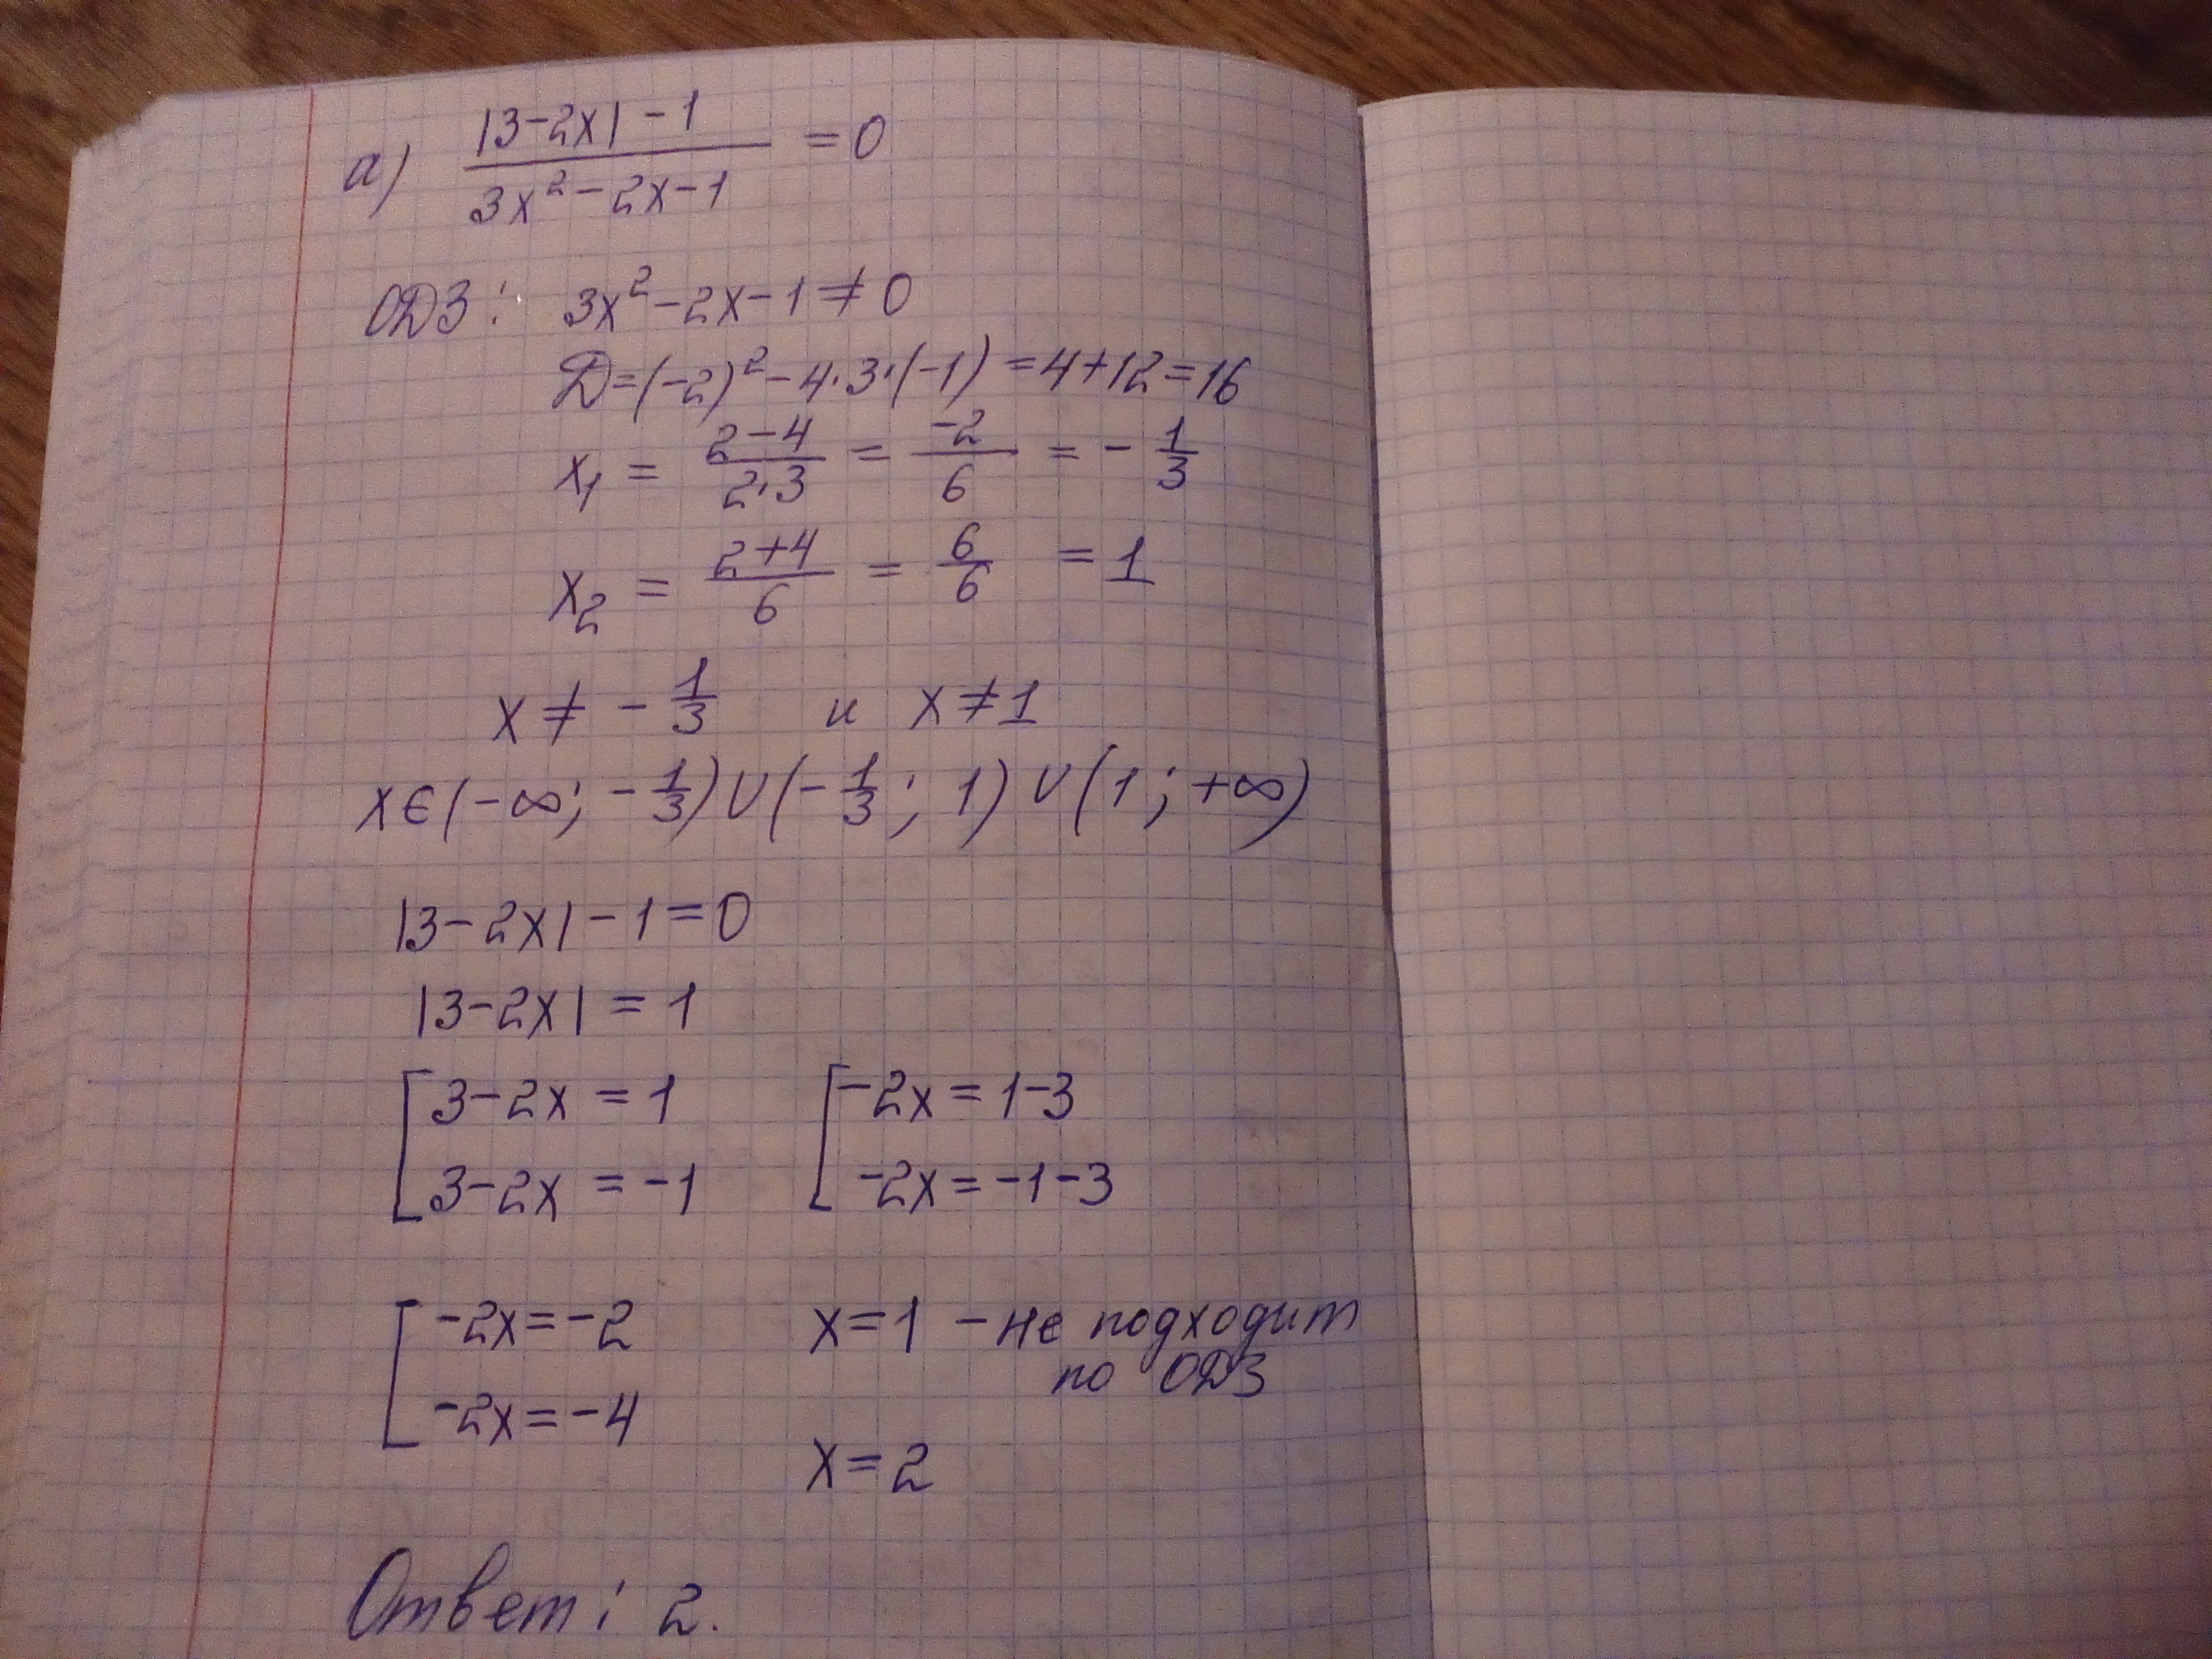 а) (|3-2x|-1)/(3x²-2x-1) = 0
ОДЗ: 3x²-2x-1≠0
D=(-2)²-4·3·(-1)=4+12=16
x₁ = (2-4)/(2·3) = -2/6 = -1/3
x₂ = (2+4)/6 = 6/6 = 1
x ≠ -1/3 и x≠1
x∈(-∞; -1/3)∪(-1/3; 1)∪(1; +∞)
|3-2x|-1=0
|3-2x|=1
[3-2x=1 [-2x=1-3
[3-2x=-1 [-2x=-1-3
[-2x=-2 x=1 - не подходит
по ОДЗ
[-2x=-4 x=2
Ответ: 2.